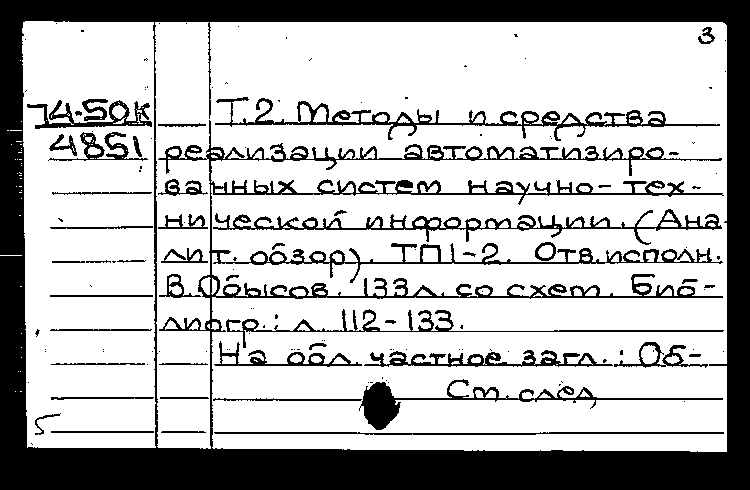 3
74-50К Т.2. Методы и средства
4851 реализации автоматизиро-
ванных систем научно-тех-
нической информации. (Ана-
лит. обзор). ТП1-2. Отв. исполн.
В. Обысов. 133 л. со схем. Биб-
лиогр.: л. 112-133.
На обл. частное загл.: Об-
См. след
5